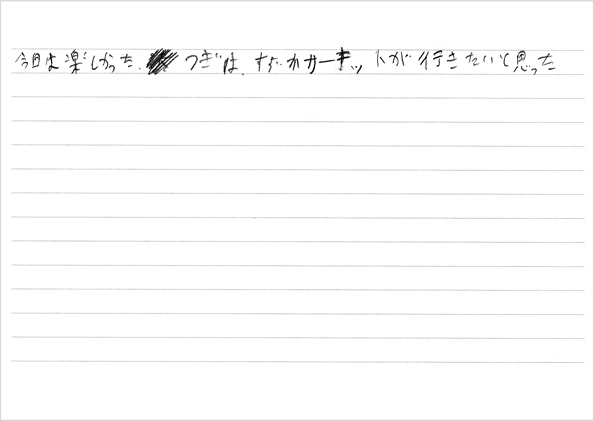 今日は楽しかった。つぎは、すずかサーキットが行きたいと思った